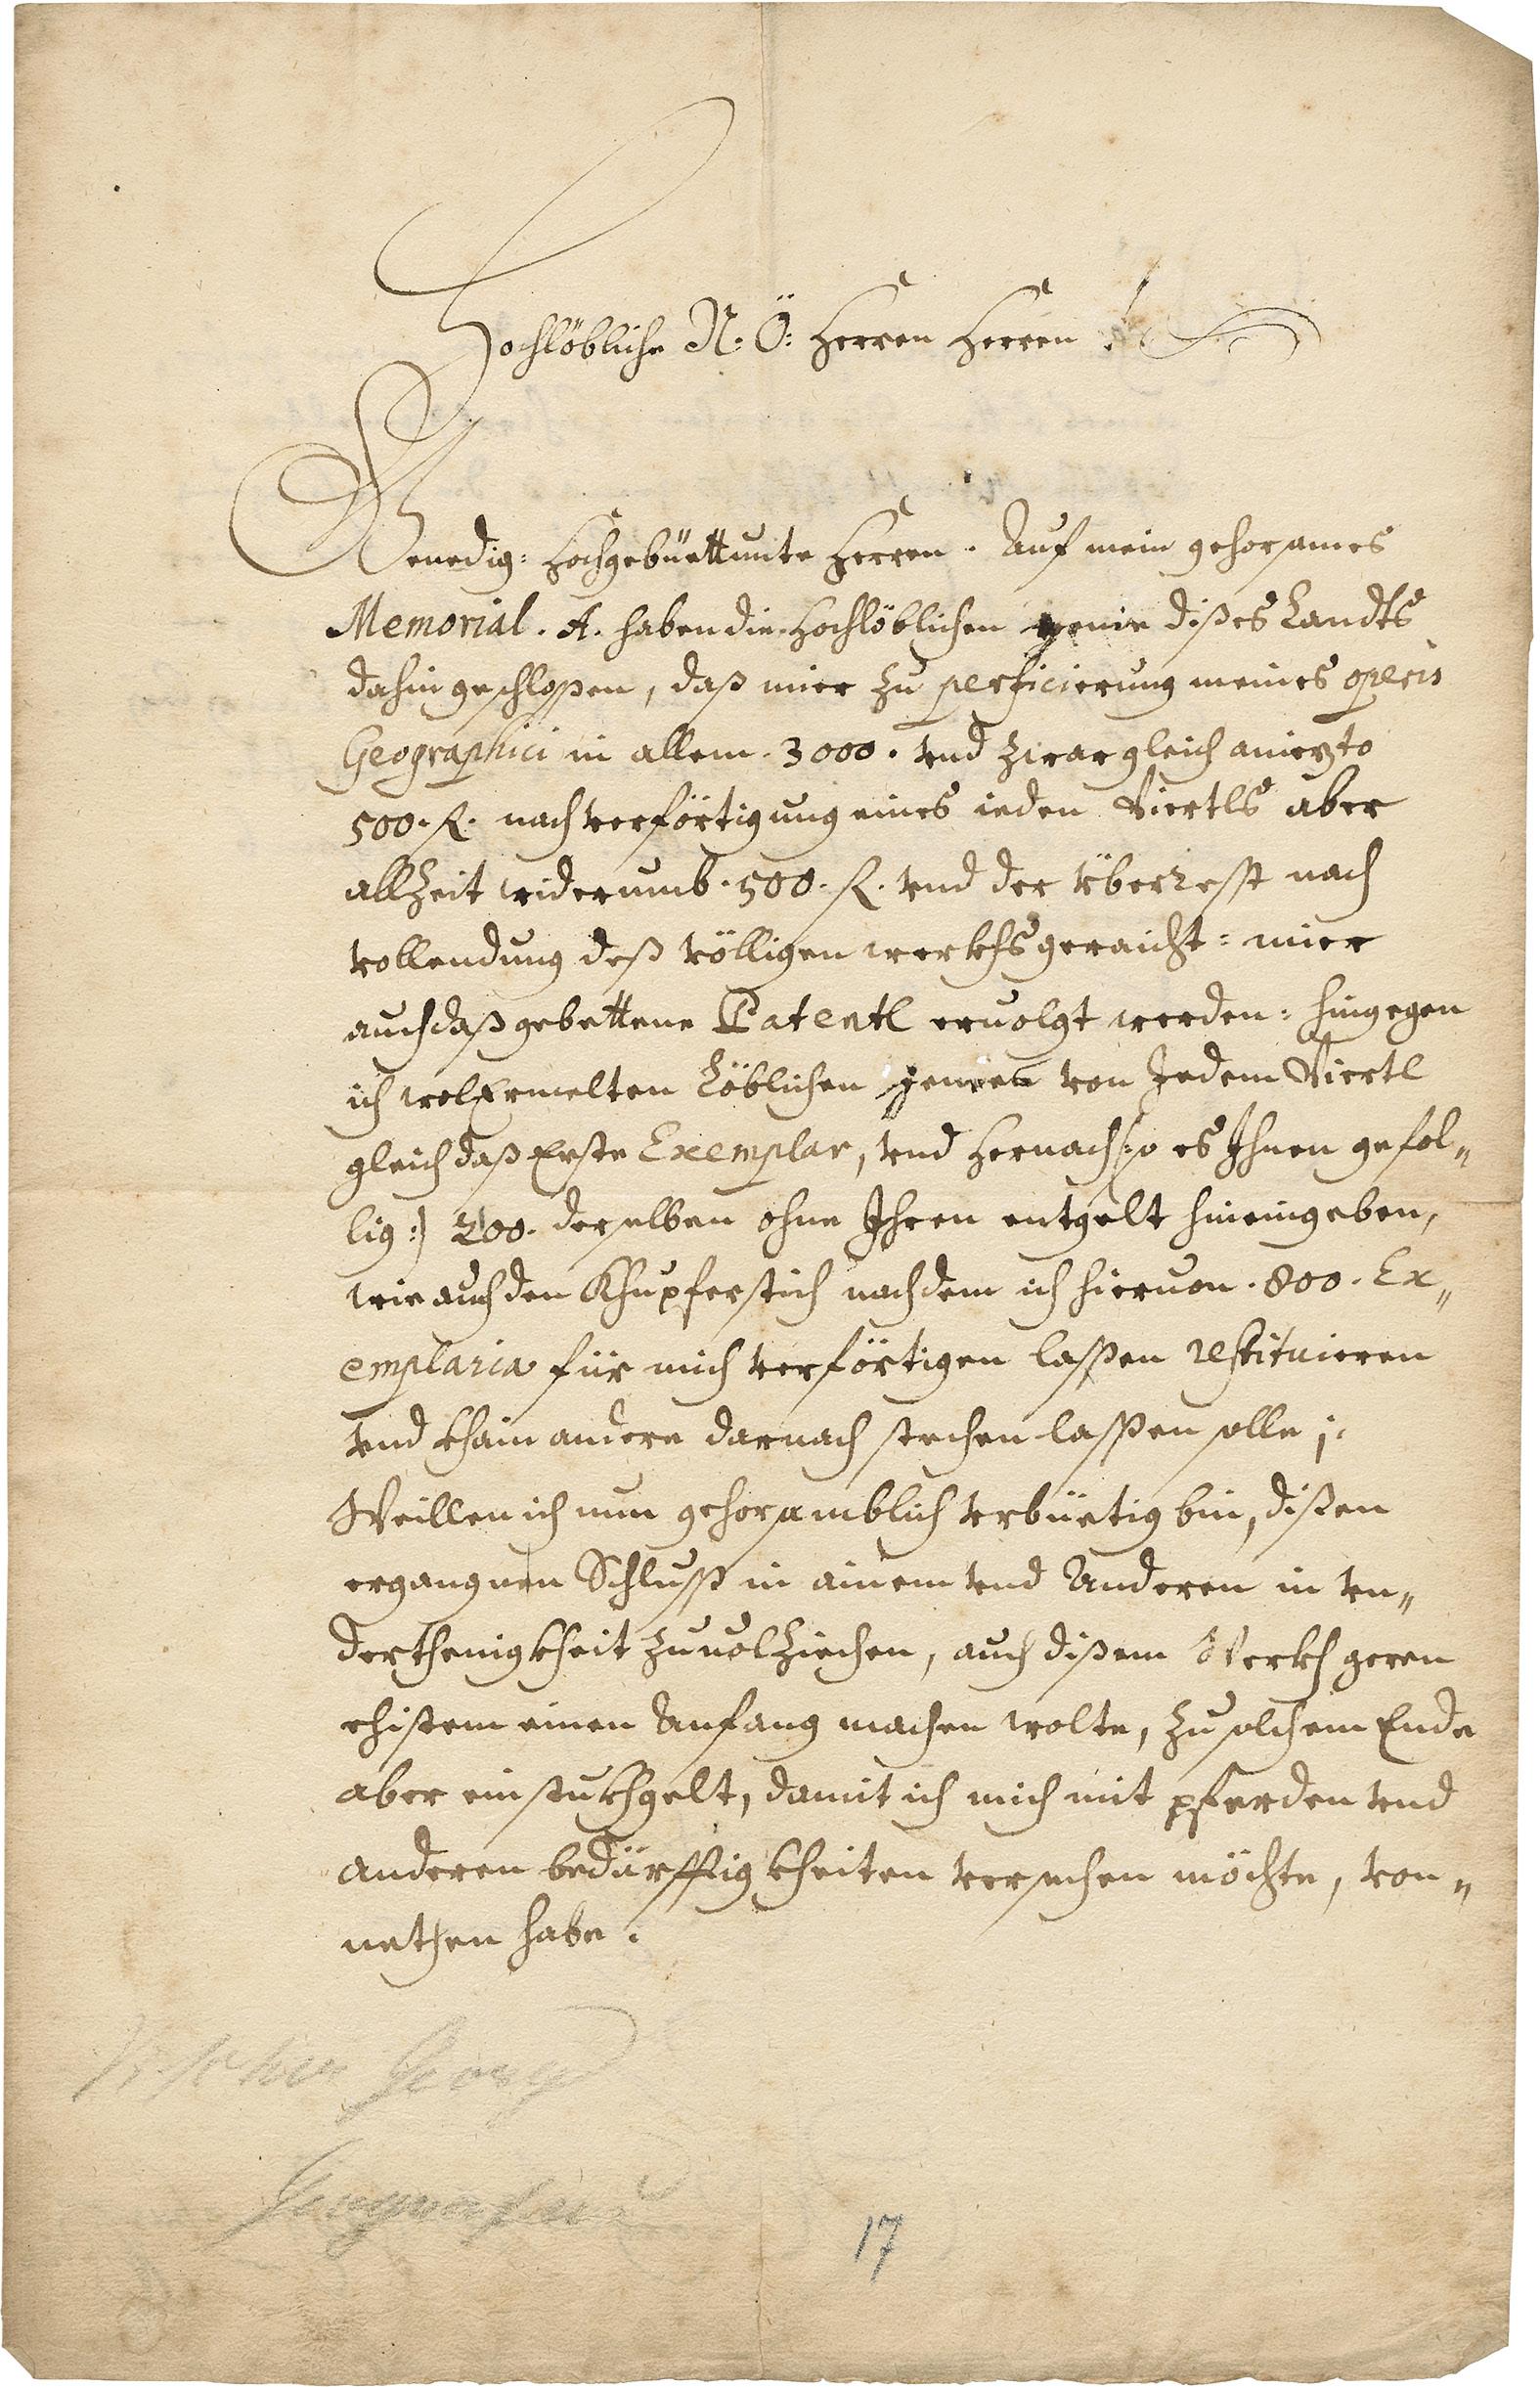 Hochlöbliche N: Ö: Herren Herren
Genedig: Hochgebüettunte Herren. Auf mein gehorsames
Memorial. A. haben die Hochlöblichen dißes Landts
dahin geschlossen, daß mier zu perficierung meines operis
Geographici in allem. 3000. vnd zwar gleich aniezto
500. fl. nach verförtigung eines ieden Viertls aber
allzeit widerumb. 500. fl. vnd der überresst nach
vollendung deß völligen werkhs geraicht: mier
auch daß gebettene Patentl eruolgt werden: hingegen
ich wolermelten Löblichen von Jedem Viertl
gleich daß Erste Exemplar, vnd hernach /:so es Ihnen geföl„
lig:/ 200. derselben ohne Ihren entgelt hineingeben,
wie auch den Khupferstich nachdem ich hieruon. 800. Ex„
emplaria für mich verförtigen lassen restituieren
vnd khain andere darnach stechen lassen solle;.
Weillen ich nun gehorsamblich verbüetig bin, dißen
ergangnen Schluss in ainem vnd Anderen in vn„
derthenigkheit zuuolziechen, auch dißem Werkh geren
ehistem einen Anfang machen wolte, zu solchem Ende
aber ein stukhgelt, damit ich mich mit pferden vnd
anderen bedürfftigkheiten versechen möchte, von„
nethen habe.
Vischer Georg
Geograf
17